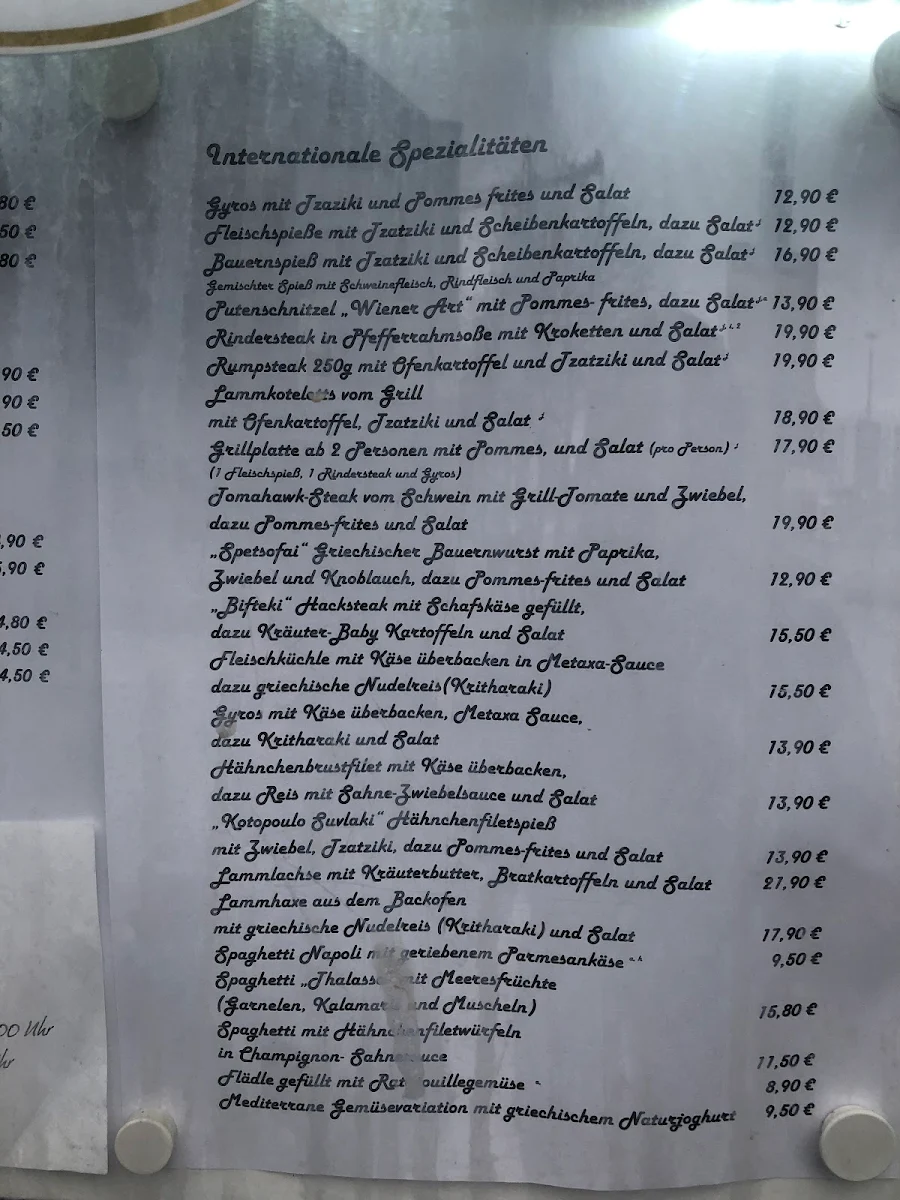 Internationale Spezialitäten
Gyros mit Tzaziki und Pommes frites und Salat 12,90 €
Fleischspieße mit Tzatziki und Scheibenkartoffeln, dazu Salat 12,90 €
Bauernspieß mit Tzatziki und Scheibenkartoffeln, dazu Salat 16,90 €
Gemischter Spieß mit Schweinefleisch, Rindfleisch und Paprika
Putenschnitzel „Wiener Art" mit Pommes- frites, dazu Salat 13,90 €
Rindersteak in Pfefferrahmsoße mit Kroketten und Salat 19,90 €
Rumpsteak 250g mit Ofenkartoffel und Tzatziki und Salat 19,90 €
Lammkoteletts vom Grill
mit Ofenkartoffel, Tzatziki und Salat 18,90 €
Grillplatte ab 2 Personen mit Pommes, und Salat (pro Person) 17,90 €
(1 Fleischspieß, 1 Rindersteak und Gyros)
Tomahawk-Steak vom Schwein mit Grill-Tomate und Zwiebel,
dazu Pommes-frites und Salat 19,90 €
„Spetsofai" Griechischer Bauernwurst mit Paprika,
Zwiebel und Knoblauch, dazu Pommes-frites und Salat 12,90 €
„Bifteki" Hacksteak mit Schafskäse gefüllt,
dazu Kräuter-Baby Kartoffeln und Salat 15,50 €
Fleischküchle mit Käse überbacken in Metaxa-Sauce
dazu griechische Nudelreis(Kritharaki) 15,50 €
Gyros mit Käse überbacken, Metaxa Sauce,
dazu Kritharaki und Salat 13,90 €
Hähnchenbrustfilet mit Käse überbacken,
dazu Reis mit Sahne-Zwiebelsauce und Salat 13,90 €
„Kotopoulo Suvlaki" Hähnchenfiletspieß
mit Zwiebel, Tzatziki, dazu Pommes-frites und Salat 13,90 €
Lammlachse mit Kräuterbutter, Bratkartoffeln und Salat 21,90 €
Lammhaxe aus dem Backofen
mit griechische Nudelreis (Kritharaki) und Salat 17,90 €
Spaghetti Napoli mit geriebenem Parmesankäse 9,50 €
Spaghetti „Thalassa" mit Meeresfrüchte
(Garnelen, Kalamaris und Muscheln) 15,80 €
Spaghetti mit Hähnchenfiletwürfeln
in Champignon- Sahnesauce 11,50 €
Flädle gefüllt mit Ratatouillegemüse 8,90 €
Mediterrane Gemüsevariation mit griechischem Naturjoghurt 9,50 €
80 €
50 €
80 €
90 €
90 €
50 €
,90 €
,90 €
4,80 €
4,50 €
4,50 €
00 Uhr
hr